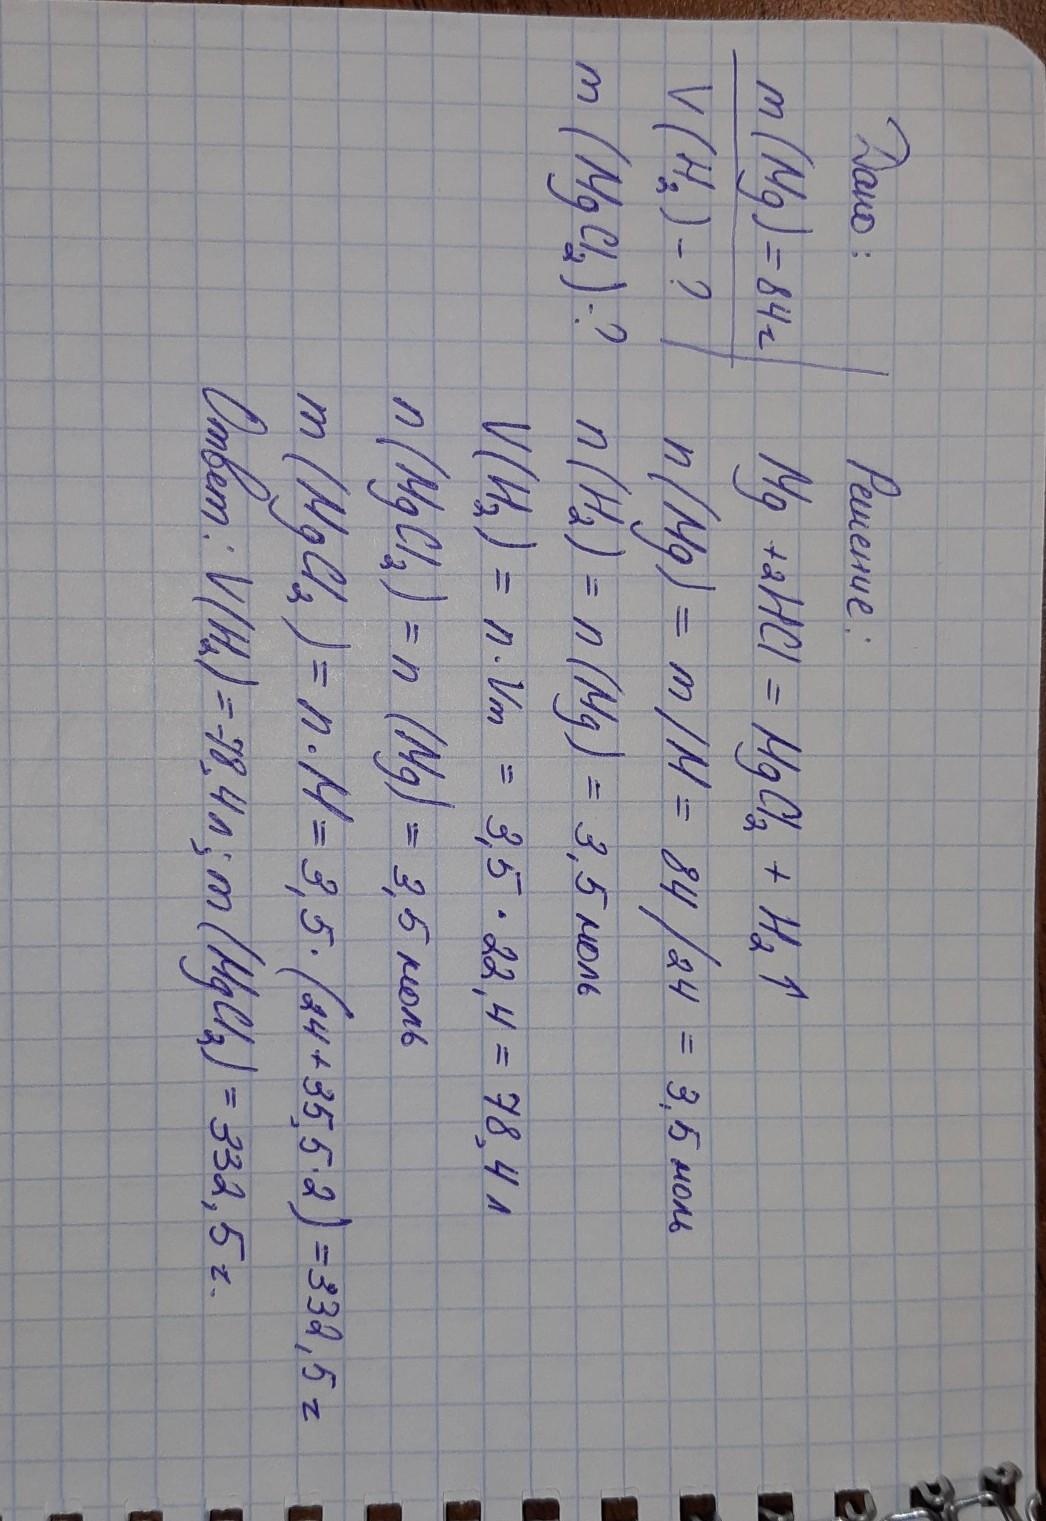 Дано:
m(Mg)=84г
V(H₂)-?
m(MgCl₂)-?
Решение:
Mg+2HCl=MgCl₂+H₂↑
n(Mg)=m/M=84/24=3,5моль
n(H₂)=n(Mg)=3,5моль
V(H₂)=n·Vm=3,5·22,4=78,4л
n(MgCl₂)=n(Mg)=3,5моль
m(MgCl₂)=n·M=3,5·(24+35,5·2)=332,5г
Ответ: V(H₂)=78,4л; m(MgCl₂)=332,5г.